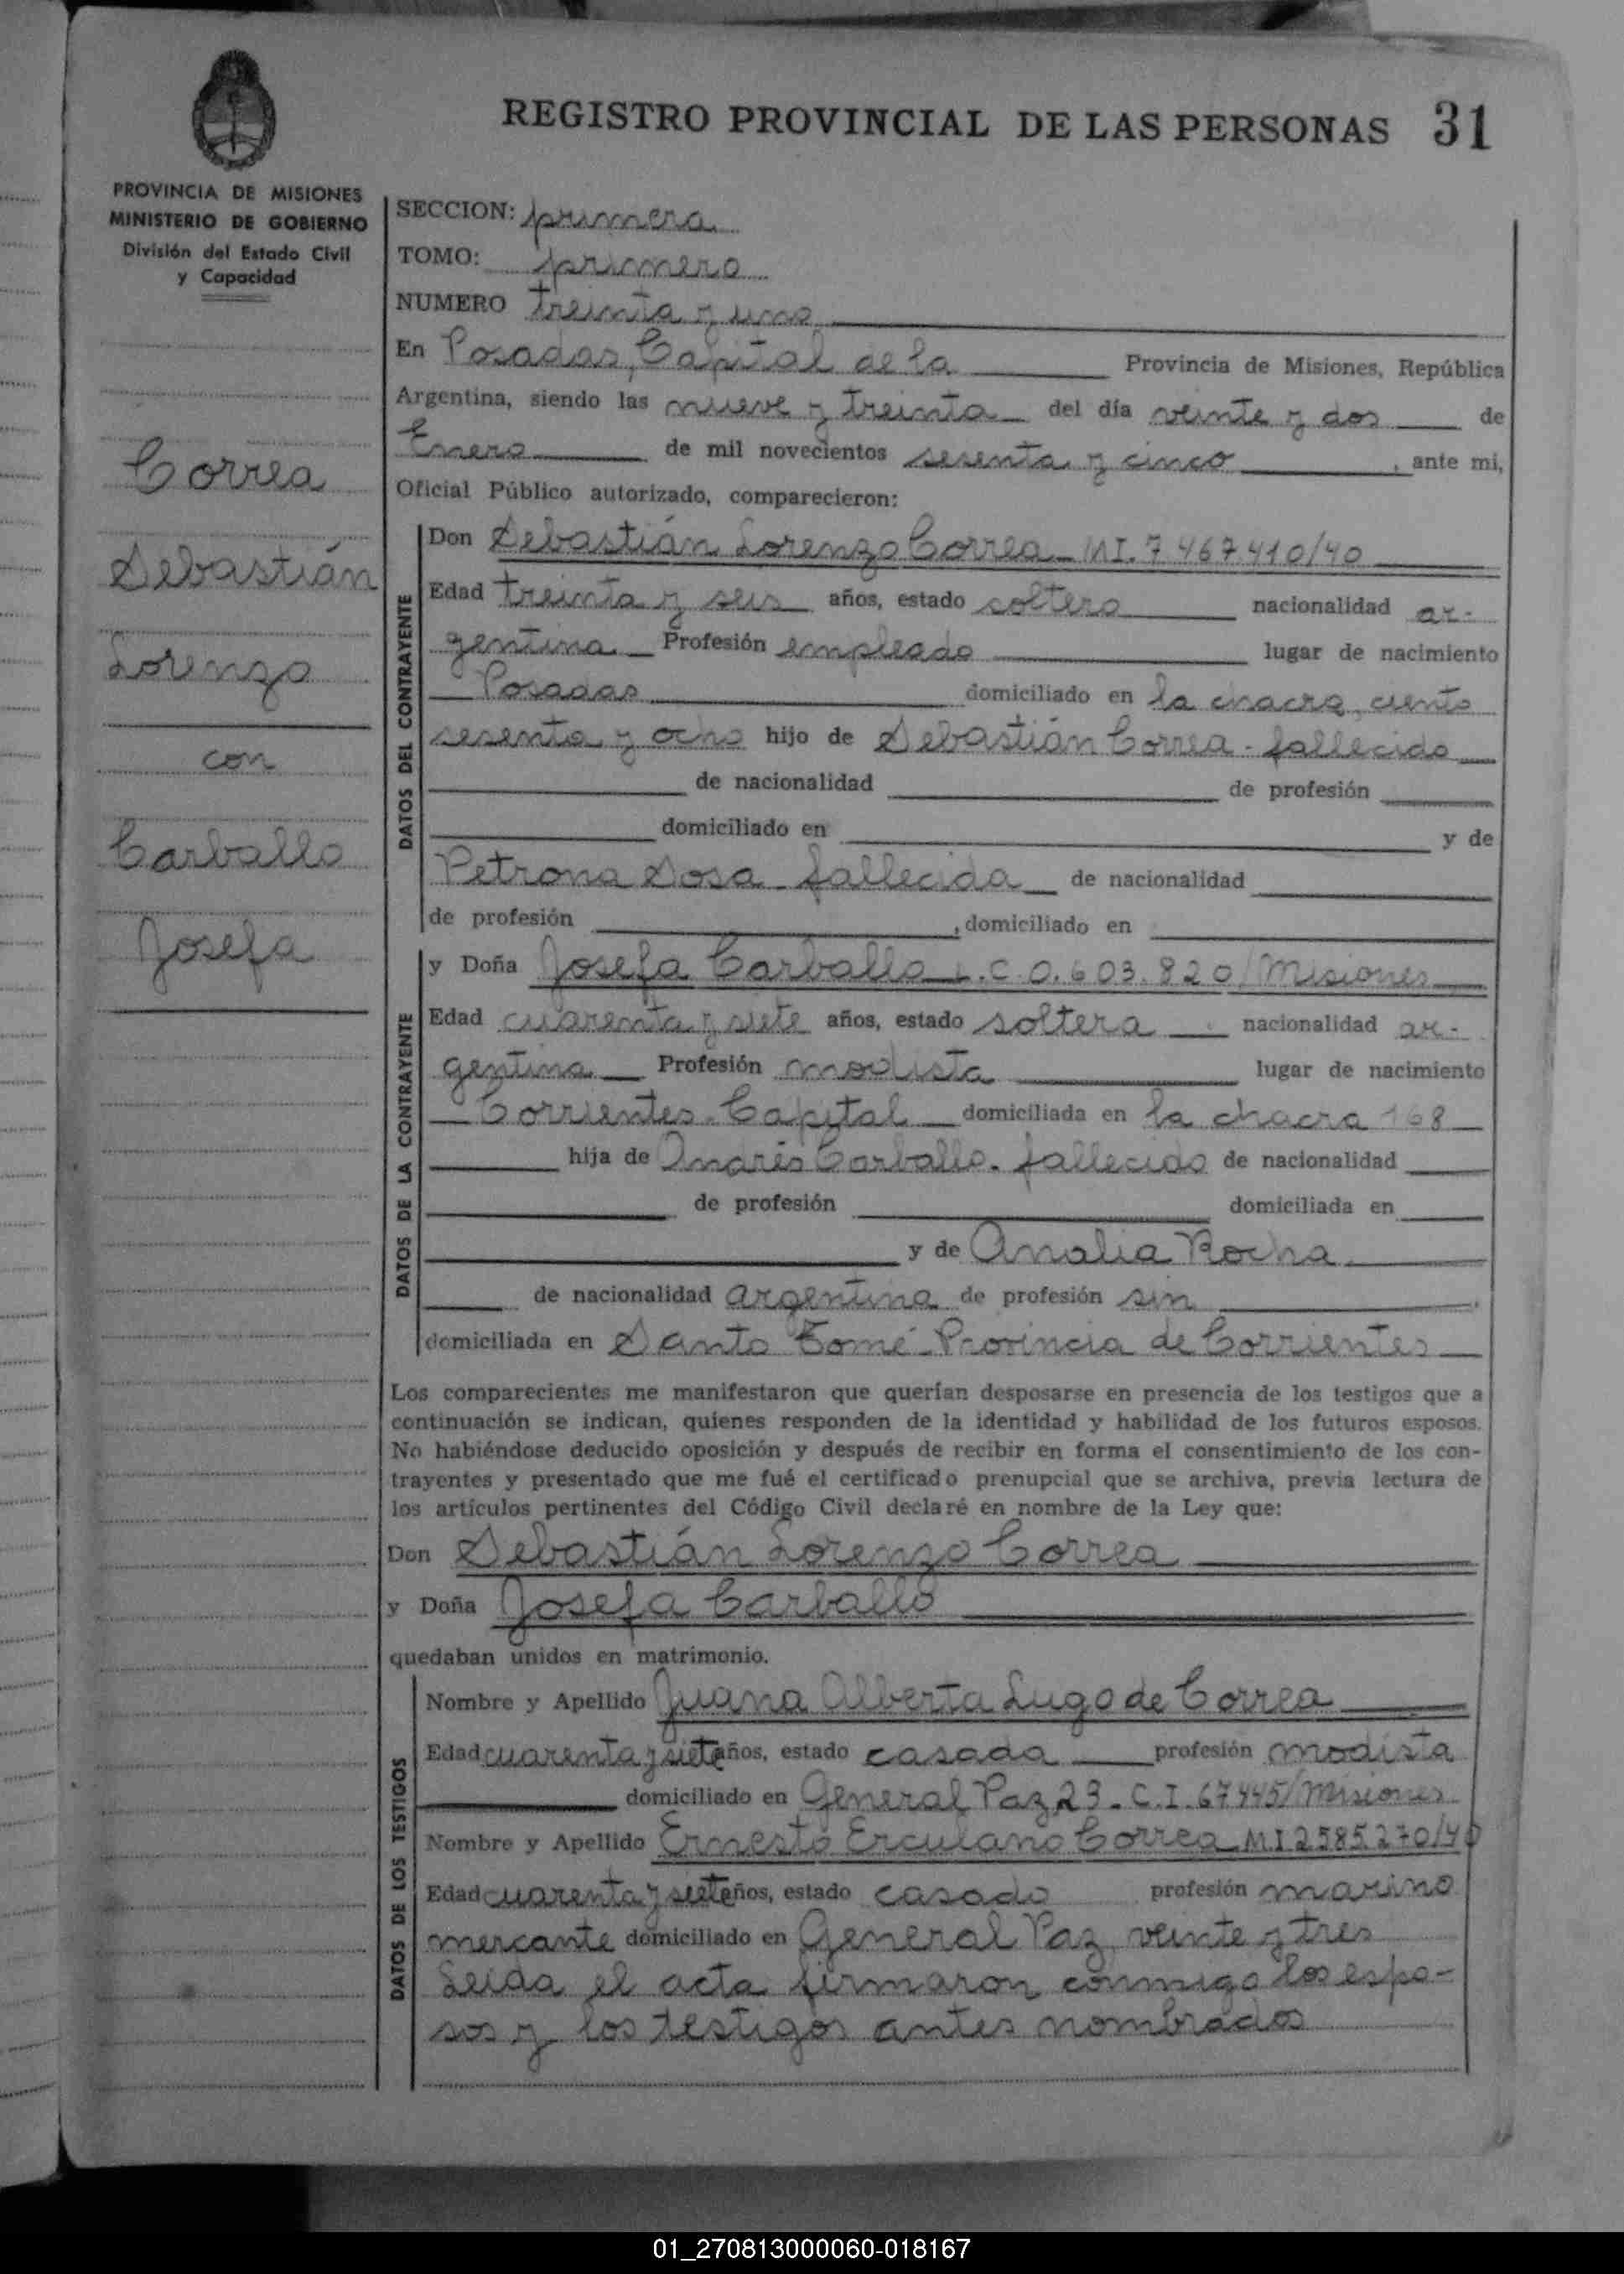 REGISTRO PROVINCIAL DE LAS PERSONAS 31
PROVINCIA DE MISIONES
MINISTERIO DE GOBIERNO
División del Estado Civil
y Capacidad
Correa
Sebastián
Lorenzo
con
Carballo
Josefa
SECCION: primera
TOMO: primero
NUMERO treinta y uno
En Posadas, Capital de la Provincia de Misiones, República
Argentina, siendo las nueve y treinta del día veinte y dos de
Enero de mil novecientos sesenta y cinco, ante mi,
Oficial Público autorizado, comparecieron:
DATOS DEL CONTRAYENTE
Don Sebastián Lorenzo Correa - MI. 7.467.410/40
Edad treinta y seis años, estado soltero nacionalidad ar-
gentina Profesión empleado lugar de nacimiento
Posadas domiciliado en la chacra, ciento
sesenta y ocho hijo de Sebastián Correa - fallecido
de nacionalidad de profesión
domiciliado en y de
Petrona Sosa - fallecida de nacionalidad
de profesión , domiciliado en
DATOS DE LA CONTRAYENTE
y Doña Josefa Carballo L.C. 0.603.820/Misiones
Edad cuarenta y siete años, estado soltera nacionalidad ar-
gentina Profesión modista lugar de nacimiento
Corrientes - Capital domiciliada en la chacra 168
hija de Andrés Carballo - fallecido de nacionalidad
de profesión domiciliada en
y de Analia Rocha
de nacionalidad argentina de profesión sin
domiciliada en Santo Tomé - Provincia de Corrientes
Los comparecientes me manifestaron que querían desposarse en presencia de los testigos que a
continuación se indican, quienes responden de la identidad y habilidad de los futuros esposos.
No habiéndose deducido oposición y después de recibir en forma el consentimiento de los con-
trayentes y presentado que me fué el certificado prenupcial que se archiva, previa lectura de
los artículos pertinentes del Código Civil declaré en nombre de la Ley que:
Don Sebastián Lorenzo Correa
y Doña Josefa Carballo
quedaban unidos en matrimonio.
DATOS DE LOS TESTIGOS
Nombre y Apellido Juana Alberta Lugo de Correa
Edad cuarenta y siete años, estado casada profesión modista
domiciliado en General Paz 23 - C.I. 67445/Misiones
Nombre y Apellido Ernesto Erculano Correa M.I 2.585.270/40
Edad cuarenta y siete años, estado casado profesión marino
mercante domiciliado en General Paz, veinte y tres
Leída el acta firmaron conmigo los espo-
sos y los testigos antes nombrados
01_270813000060-018167